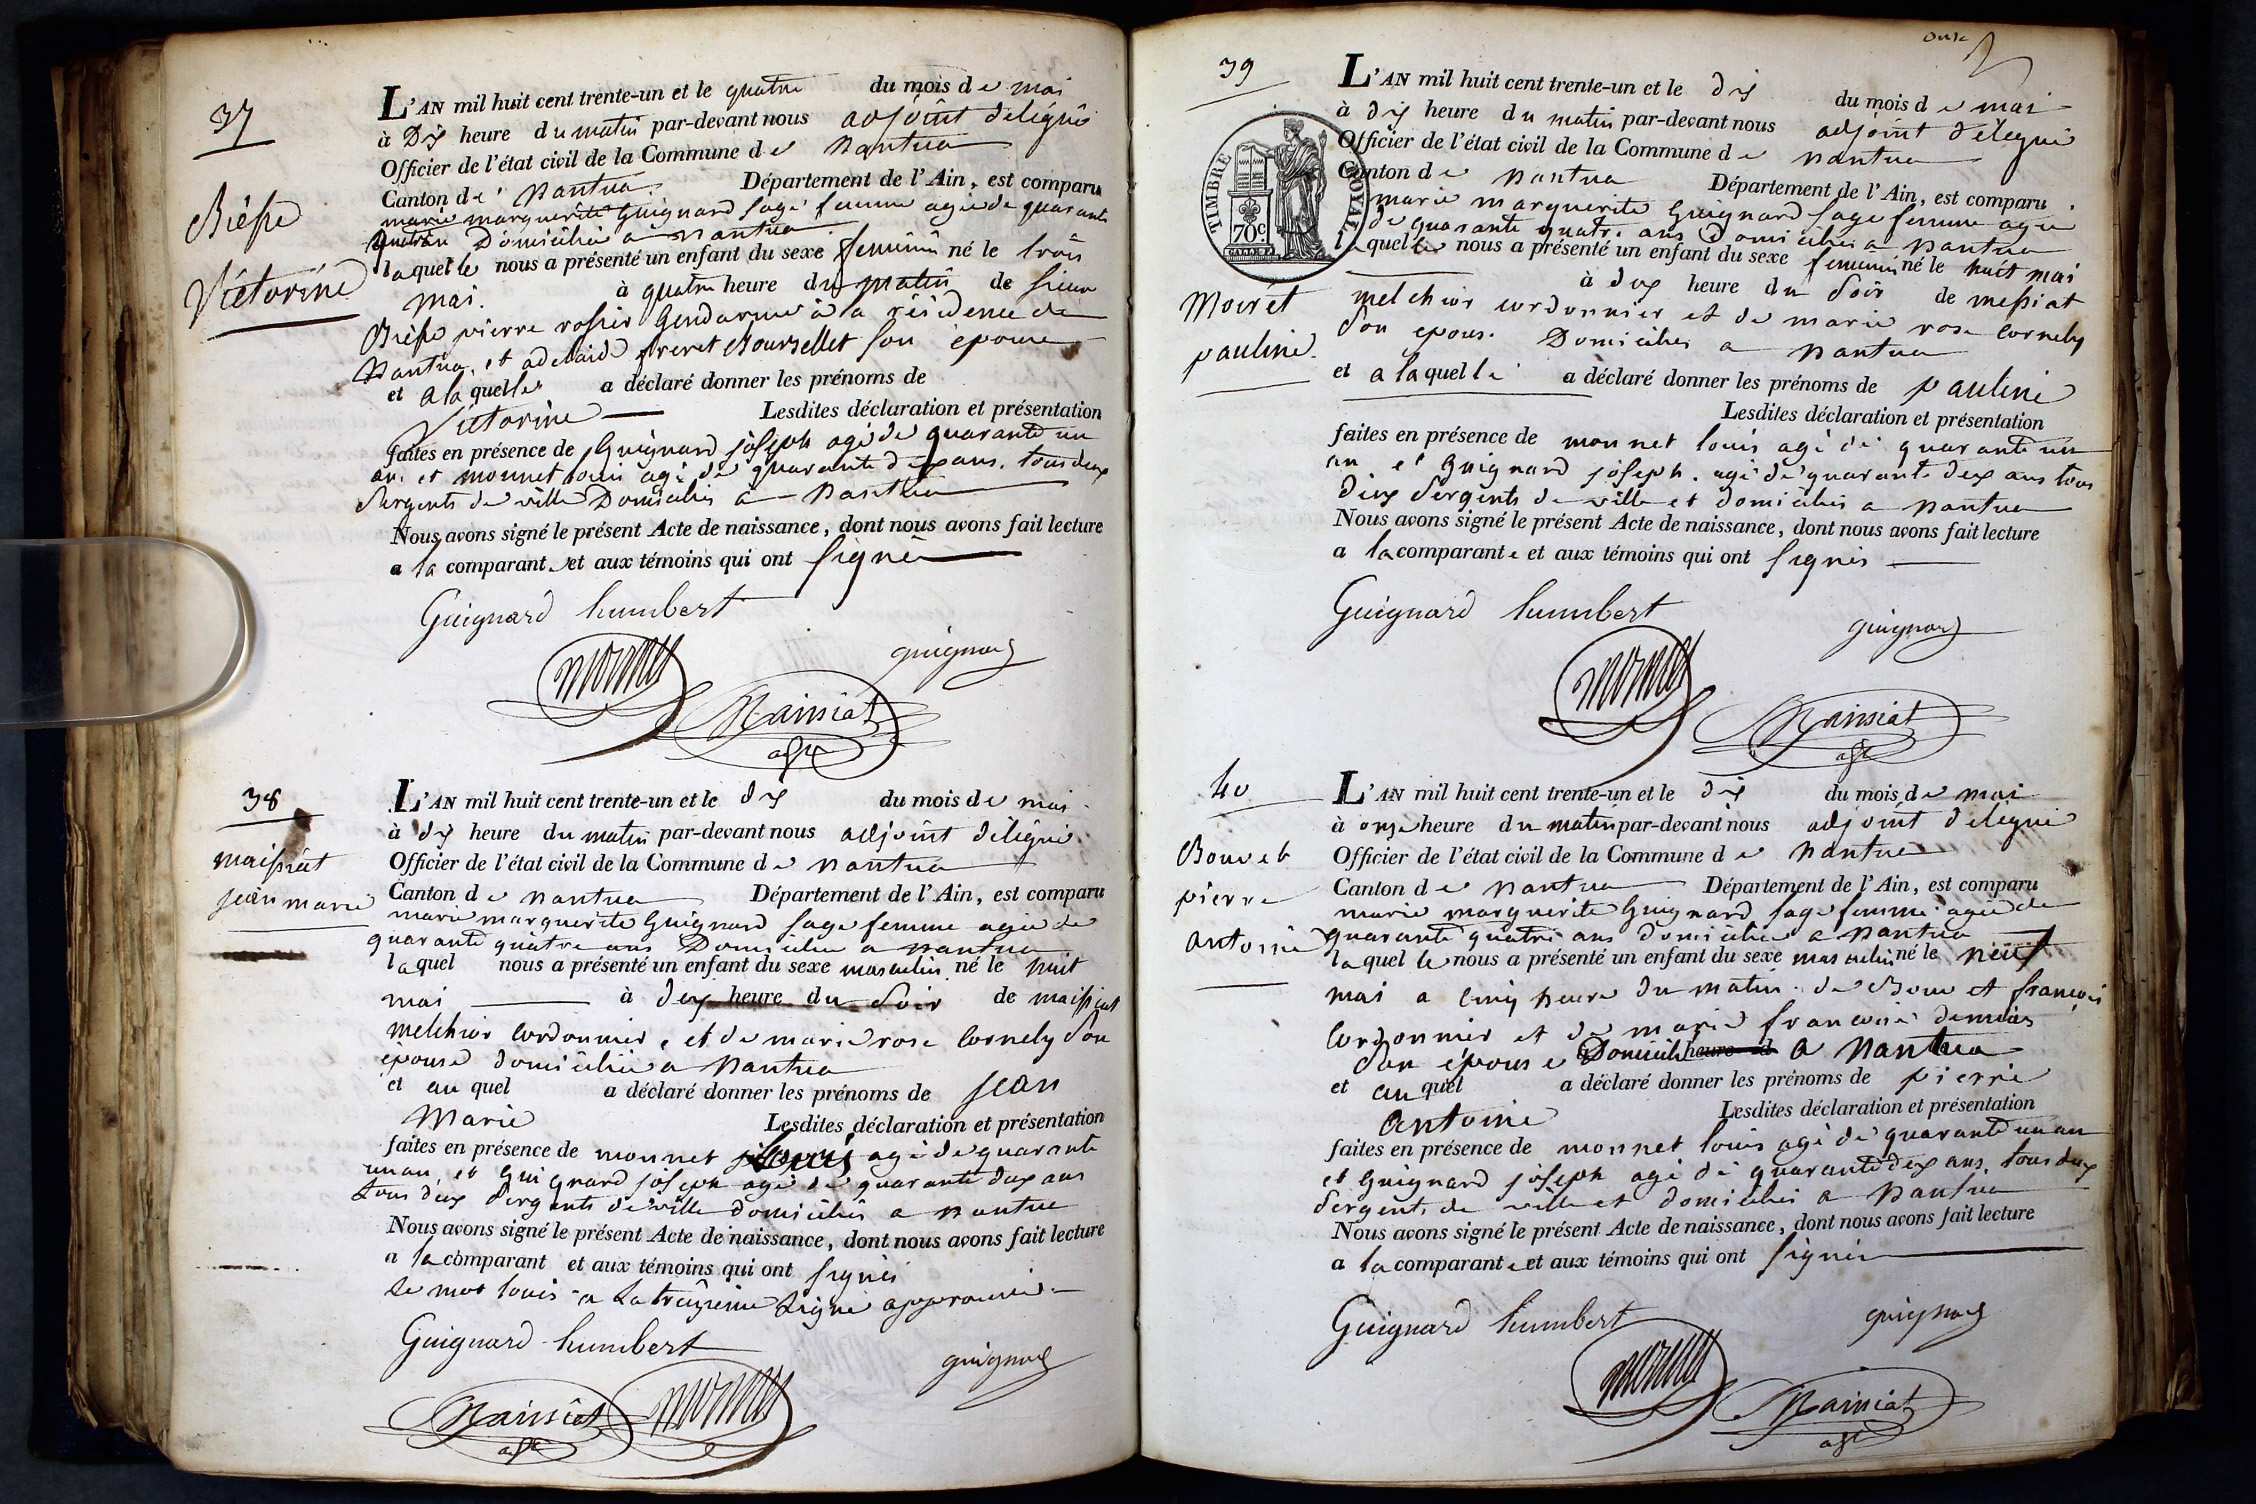 37
Bièsse
Victorine
L'AN mil huit cent trente-un et le quatre du mois de mai
à Dix heure du matin par-devant nous adjoint délégué
Officier de l'état civil de la Commune de Nantua
Canton de Nantua. Département de l'Ain, est comparu
marie marguerite Guignard sage femme agée de quarante
Domicilié a Nantua
laquelle nous a présenté un enfant du sexe feminin né le trois
mai. à quatre heure du matin de sieur
Bièsse pierre rosier Gendarme à la résidence de
Nantua, et adelaide freret Boursellet son épouse
et a laquelle a déclaré donner les prénoms de
Victorine Lesdites déclaration et présentation
faites en présence de Guignard joseph agé de quarante un
an. et monnet louis agé de quarante dix ans. tous deux
Sergents de ville Domiciliés à Nantua
Nous avons signé le présent Acte de naissance, dont nous avons fait lecture
a la comparante et aux témoins qui ont signé
Guignard humbert
monnet guignard
Mainiat
adjt
38
maissiat
jean marie
L'AN mil huit cent trente-un et le dix du mois de mai
à dix heure du matin par-devant nous adjoint délégué
Officier de l'état civil de la Commune de Nantua
Canton de Nantua Département de l'Ain, est comparu
marie marguerite Guignard sage femme agée de
quarante quatre ans Domiciliée a Nantua
laquel nous a présenté un enfant du sexe masculin né le huit
mai à dix heure du soir de maissiat
melchior Cordonnier, et de marie rose Cornely son
épouse domiciliée a Nantua
et au quel a déclaré donner les prénoms de jean
Marie Lesdites déclaration et présentation
faites en présence de monnet louis agé de quarante
un an et Guignard joseph agé de quarante deux ans
tous deux sergents de ville domiciliés a nantua
Nous avons signé le présent Acte de naissance, dont nous avons fait lecture
a la comparant et aux témoins qui ont signés
Le mot louis a la treizieme Ligne approuvé
Guignard humbert
guignard
Mainiat monnet
adjt
39
Moirét
pauline.
TIMBRE ROYAL
70c.
L'AN mil huit cent trente-un et le dix du mois de mai
à dix heure du matin par-devant nous adjoint délégué
Officier de l'état civil de la Commune de nantua
Canton de nantua Département de l'Ain, est comparu
marie marguerite Guignard sage femme agée
de quarante quatre ans Domiciliée a Nantua
laquelle nous a présenté un enfant du sexe feminin né le huit mai
à dix heure du soir de messiat
melchior cordonnier et de marie rose Cornely
son epouse Domiciliés a nantua
et a laquelle a déclaré donner les prénoms de pauline
Lesdites déclaration et présentation
faites en présence de monnet louis agé de quarante un
an et Guignard joseph. agé de quarante deux ans tous
deux sergents de ville et domiciliés a nantua
Nous avons signé le présent Acte de naissance, dont nous avons fait lecture
a la comparante et aux témoins qui ont signés
Guignard humbert
guignard
monnet
Mainiat
adjt
40
Bouvet
pierre
antoine
L'AN mil huit cent trente-un et le dix du mois de mai
à onze heure du matin par-devant nous adjoint délégué
Officier de l'état civil de la Commune de Nantua
Canton de Nantua Département de l'Ain, est comparu
marie marguerite Guignard sage femme agée de
quarante quatre ans domiciliée a Nantua
laquelle nous a présenté un enfant du sexe masculin né le neuf
mai a cinq heure du matin de Bouvet françois
Cordonnier et de marie francoise
son épouse Domicilié heure d a Nantua
et au quel a déclaré donner les prénoms de pierre
antoine Lesdites déclaration et présentation
faites en présence de monnet louis agé de quarante un an
et Guignard joseph agé de quarante deux ans, tous deux
sergents de ville et domiciliés a Nantua
Nous avons signé le présent Acte de naissance, dont nous avons fait lecture
a la comparante et aux témoins qui ont signés
Guignard humbert
guignard
monnet
Mainiat
adjt